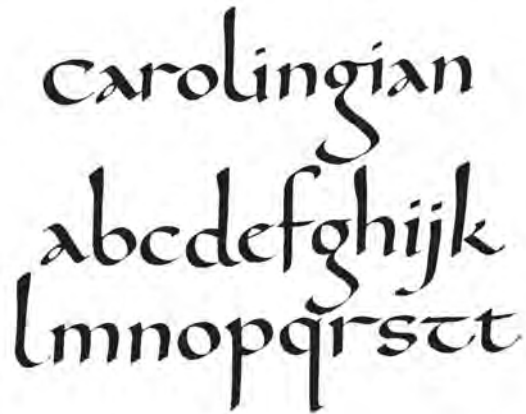 carolingian
abcdefghijk
lmnopqrstt